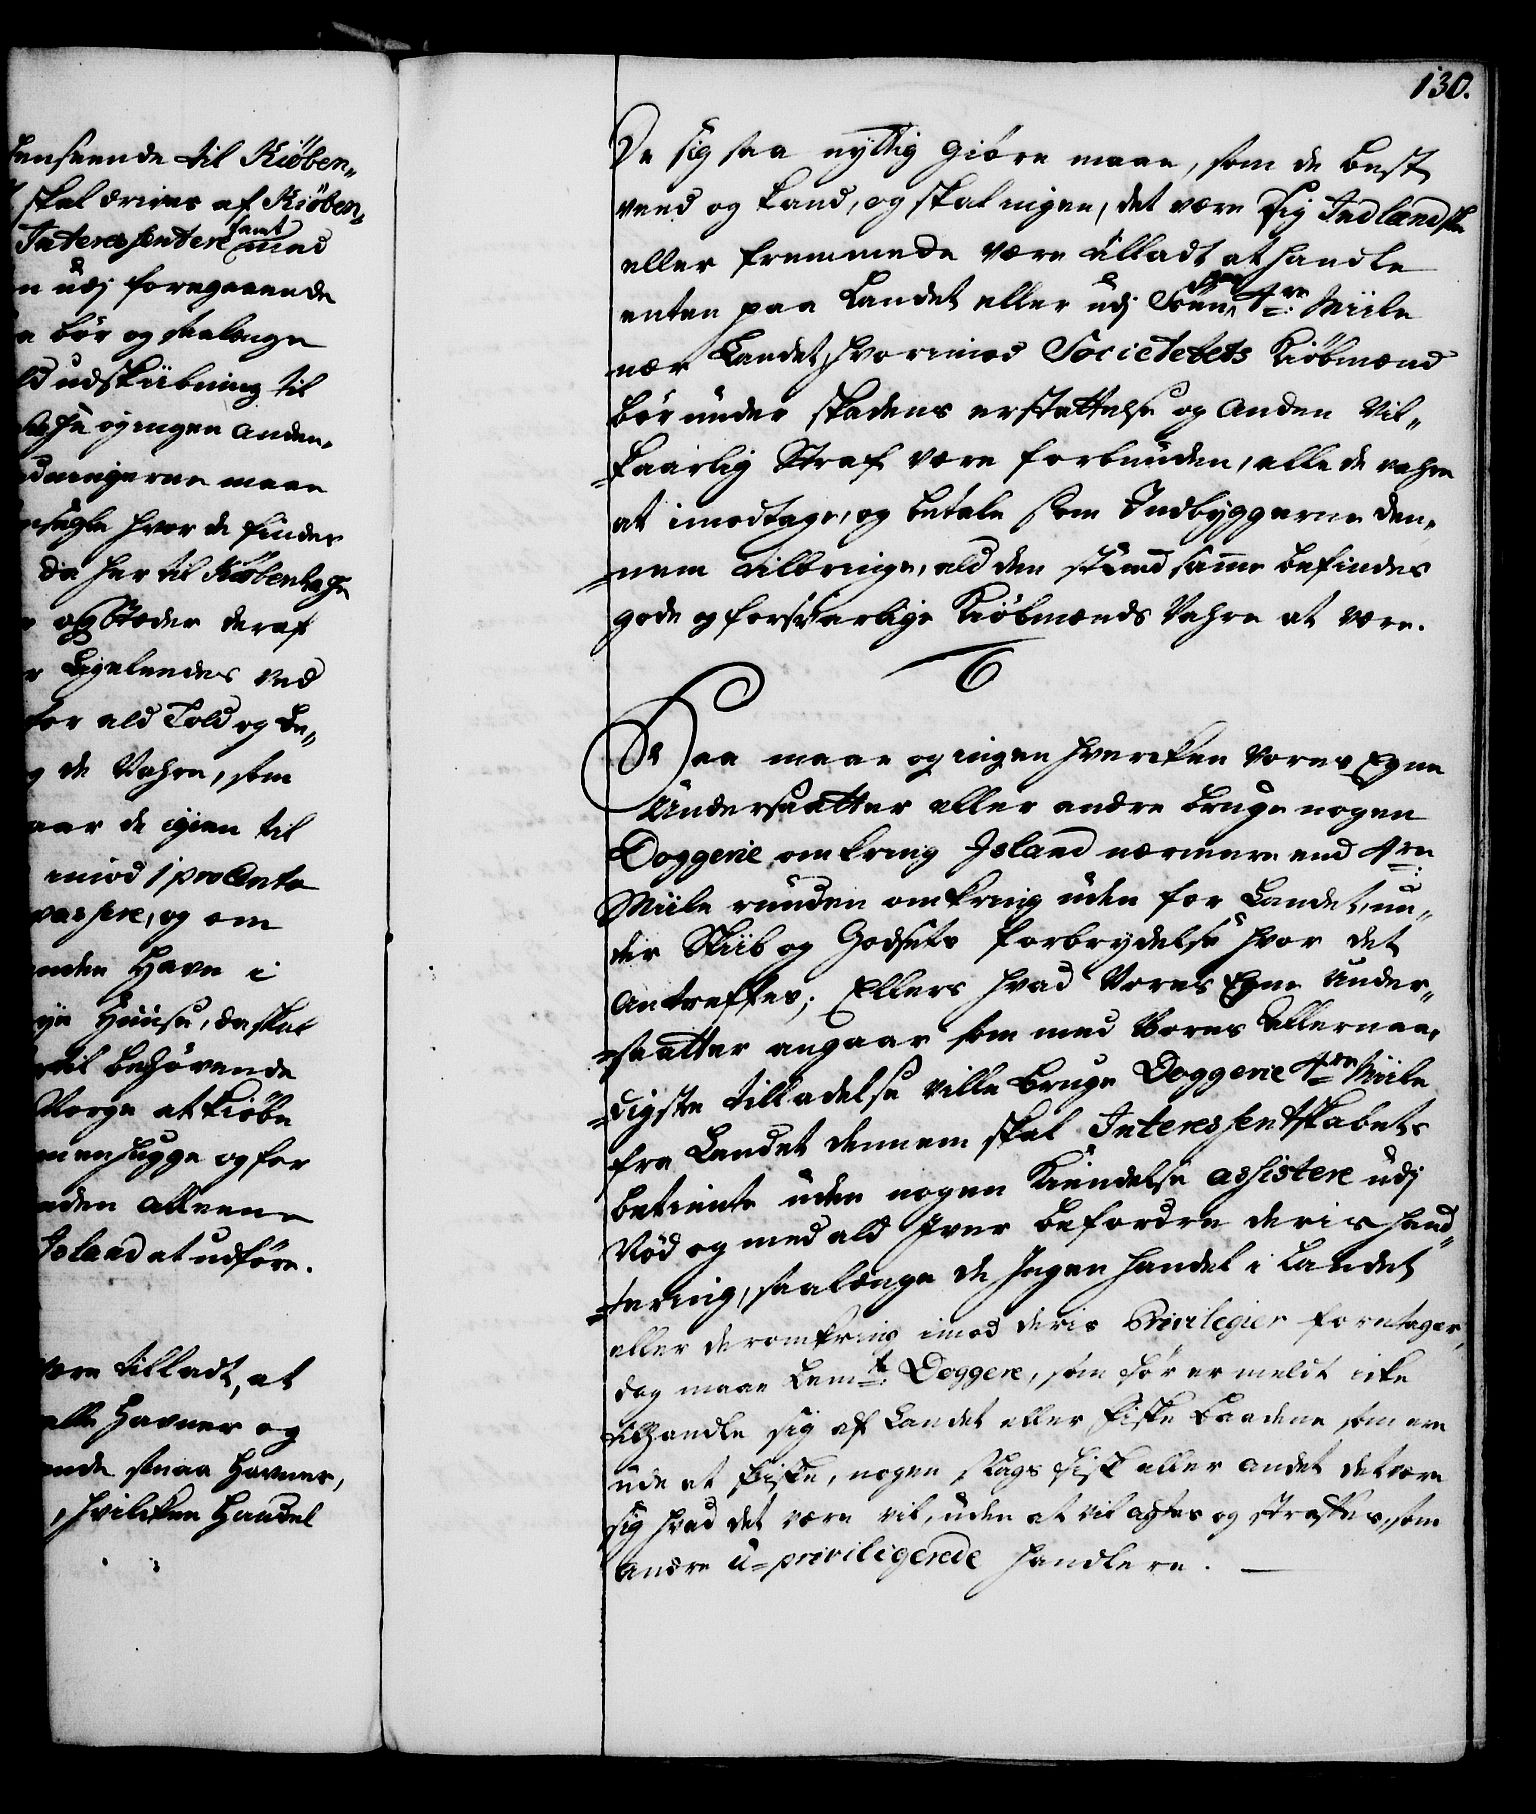 130.
enseende til Kiøben„
skal drives af Kiøben„
Interessentere samt med
n udj foregaaende
a bør og saalenge
udskibning til
og ingen anden,
maae
hvor de findes
da her til Kiøbenhafn
og Stæder deraf
Ligeledes ved
for ald Told og be„
g de Vahre, som
aar de igien til
imod 1 pro Cento
passere, og om
anden Havn i
Huuse, da skal
til behøvende
Norge at kiøbe
hugge og for
uden alleene
Island at udføre.
være tilladt, at
alle Havner og
smaa Havner,
, hvilken Handel
De sig saa nyttig giøre maae, som de best
veed og kand, og skal ingen, det være sig Indlandske
eller fremmede være tilladt at handle
enten paa Landet eller udj Søen 4re: Miile
nær Landet, hvorimod Societetets Kiøbmænd
bør under skadens erstattelse og anden Vil„
kaarlig Straf være forbunden, alle de vahre
at imodtage, og betale som Indbyggerne den„
nem tilbringe, all den stund samme befindes
gode og forsvarlige Kiøbmænds Vahre at være.
6
Saa maae og ingen hverken Vores Egne
Undersaatter eller andre bruge nogen
Doggerie omkring Island nærmere end 4re:
Miile runden omkring uden for Landet, un„
der Skiib og Godsets forbrydelse hvor det
antreffes; Ellers hvad Vores Egne Under„
saatter angaar som med Vores Allernaa„
digste tilladelse ville bruge Doggerie 4re Miile
fra Landet dennem skal Interessentskabets
betiente uden nogen Kiendelse assistere udj
Nød og med ald Iver befordre deris hand„
tering, saalænge de Ingen handel i Landet
eller deromkring imod deris Privilegier foretager,
dog maae bemte: Doggere, som før er meldt icke
tilhandle sig af Landet eller Fiske baadene som ere
ude at fiske, nogen slags Fisk eller andet det være
sig hvad det være vil, uden at vil agtes og straffes, som
andre u-priviligerede handlere.